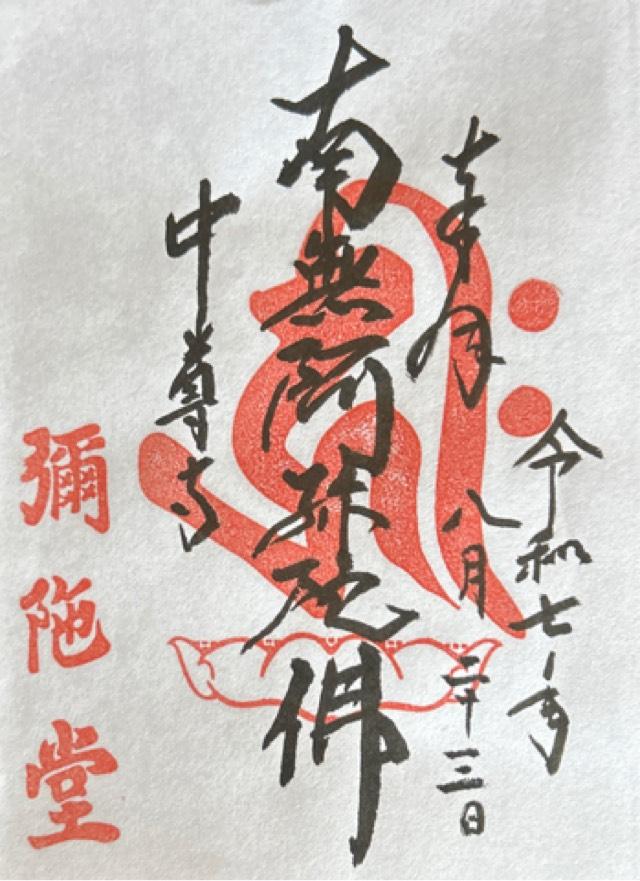 奉拝
令和七年
八月二十三日
南無阿弥陀佛
中尊寺
彌陁堂